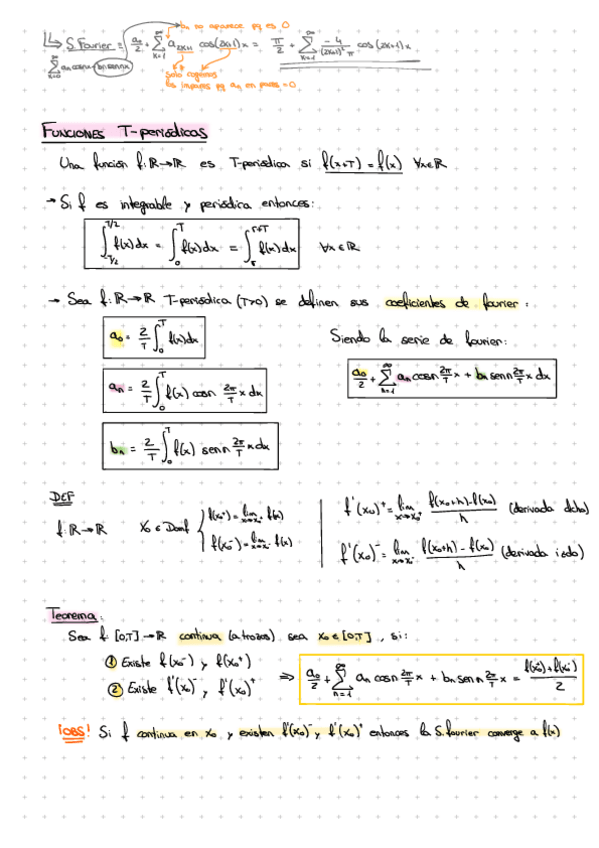 bn no aparece pq es 0
↳ S. Fourier = a₀/2 + ∑_{k=1}^{∞} a_{2k+1} cos(2k+1)x = π/2 + ∑_{k=1}^{∞} -4/((2k+1)²π) cos(2k+1)x
∑_{n=0}^{∞} an cosnx + bn sennx
Solo cogemos
los impares pq an en pares = 0
FUNCIONES T-periódicas
Una función f: ℝ→ℝ es T-periódica si f(x+T) = f(x) ∀x∈ℝ
→ Si f es integrable y periódica entonces:
∫_{T/2}^{T/2} f(x)dx = ∫_0^T f(x)dx = ∫_r^{r+T} f(x)dx ∀x∈ℝ
→ Sea f: ℝ→ℝ T-periódica (T>0) se definen sus coeficientes de fourier:
a₀ = 2/T ∫_0^T f(x)dx
Siendo la serie de fourier:
an = 2/T ∫_0^T f(x) cosn 2π/T x dx
a₀/2 + ∑_{n=1}^{∞} an cosn 2π/T x + bn senn 2π/T x dx
bn = 2/T ∫_0^T f(x) senn 2π/T x dx
DEF
f: ℝ→ℝ x₀ ∈ Domf { f(x₀⁺) = lim_{x→x₀⁺} f(x)
f(x₀⁻) = lim_{x→x₀⁻} f(x)
f'(x₀)⁺ = lim_{x→x₀⁺} (f(x₀+h) - f(x₀))/h (derivada dcha)
f'(x₀)⁻ = lim_{x→x₀⁻} (f(x₀+h) - f(x₀))/h (derivada izda)
Teorema:
Sea f: [0,T]→ℝ continua (a trozos), sea x₀∈[0,T], si:
① Existe f(x₀⁻) y f(x₀⁺)
② Existe f'(x₀)⁻ y f'(x₀)⁺
⇒ a₀/2 + ∑_{n=1}^{∞} an cosn 2π/T x + bn senn 2π/T x = (f(x₀⁺) + f(x₀⁻))/2
¡OBS! Si f continua en x₀ y existen f'(x₀)⁻ y f'(x₀)⁺ entonces la S.fourier converge a f(x)